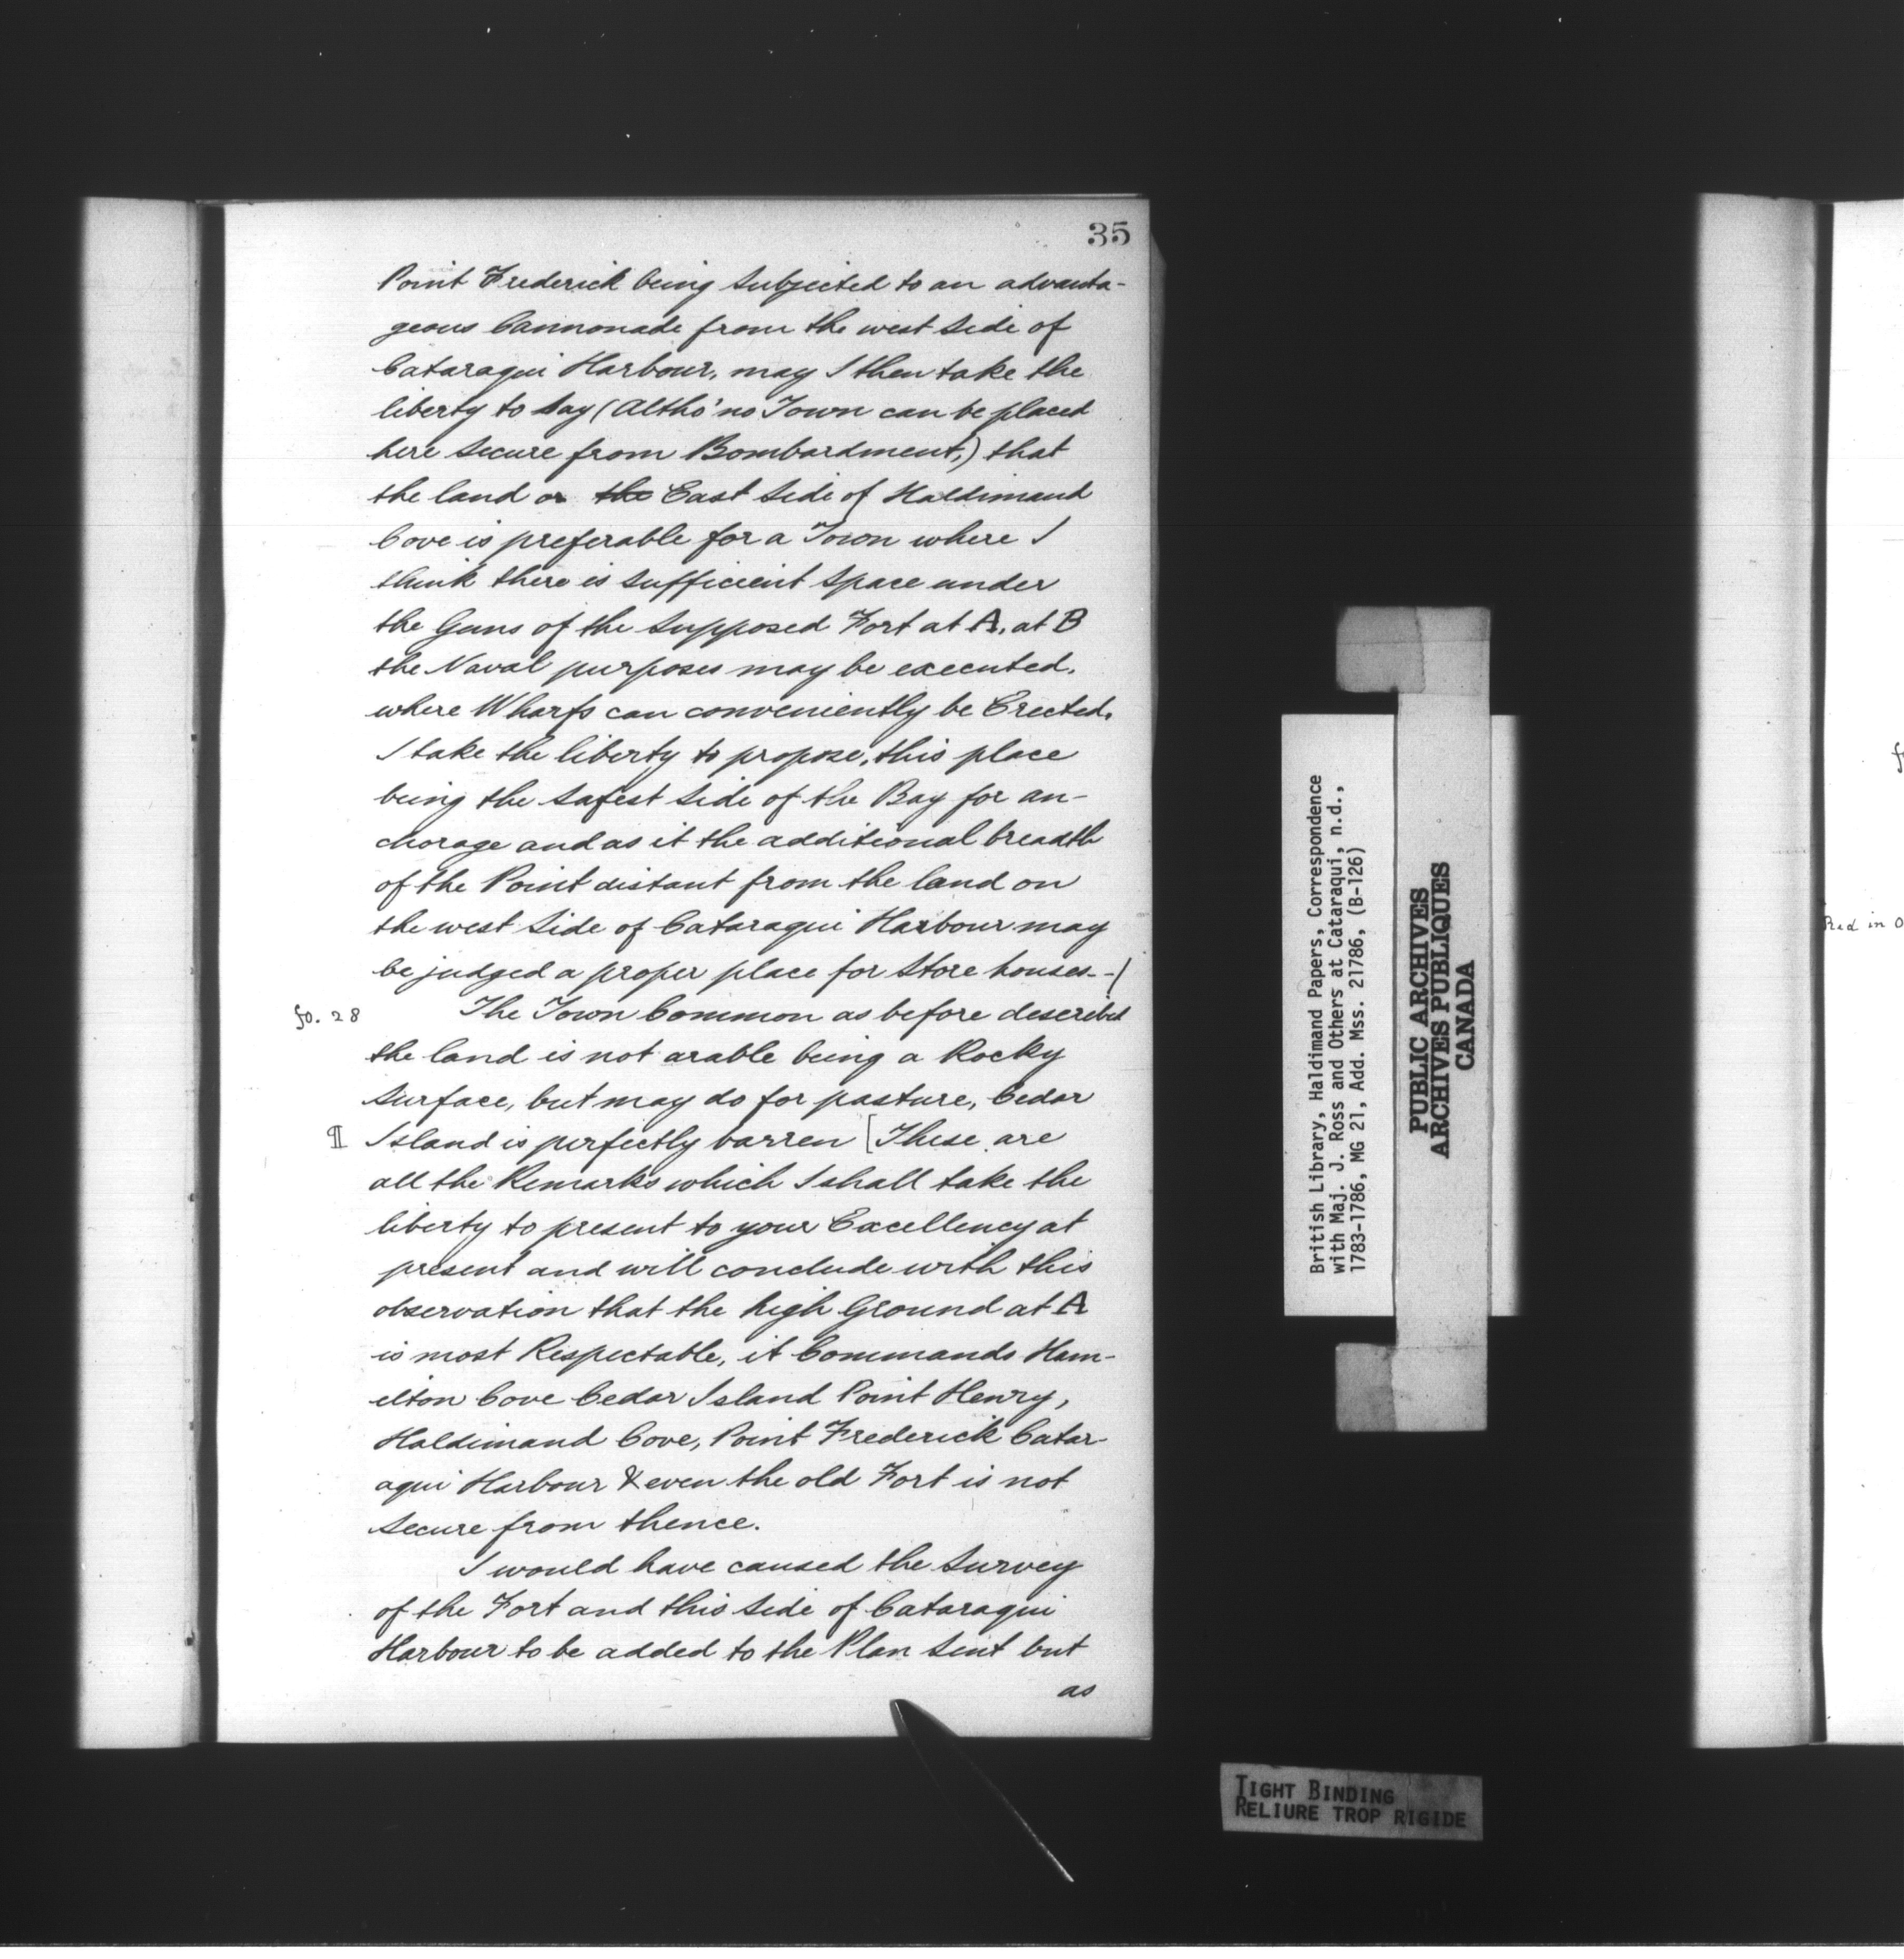 35
Point Frederick being subjected to an advanta-
geous Cannonade from the west side of
Cataraqui Harbour, may I then take the
liberty to say (Altho' no Town can be placed
here secure from Bombardment,) that
the land on the East side of Haldimand
Cove is preferable for a Town where I
think there is sufficient space under
the Guns of the supposed Fort at A, at B
the Naval purposes may be executed,
where Wharfs can conveniently be Erected.
I take the liberty to propose, this place
being the safest side of the Bay for an-
chorage and as it the additional breadth
of the Point distant from the land on
the west side of Cataraqui Harbour may
be judged a proper place for store houses--/
fo. 28 The Town Common as before described
the land is not arable being a Rocky
surface, but may do for pasture, Cedar
¶ Island is perfectly barren [These are
all the Remarks which I shall take the
liberty to present to your Excellency at
present and will conclude with this
observation that the high Ground at A
is most Respectable, it Commands Ham-
ilton Cove Cedar Island Point Henry,
Haldimand Cove, Point Frederick Catar-
aqui Harbour & even the old Fort is not
secure from thence.
I would have caused the survey
of the Fort and this side of Cataraqui
Harbour to be added to the Plan sent but
as
British Library, Haldimand Papers, Correspondence
with Maj. J. Ross and Others at Cataraqui, n.d.,
1783-1786, MG 21, Add. Mss. 21786, (B-126)
PUBLIC ARCHIVES
ARCHIVES PUBLIQUES
CANADA
TIGHT BINDING
RELIURE TROP RIGIDE
Red in O